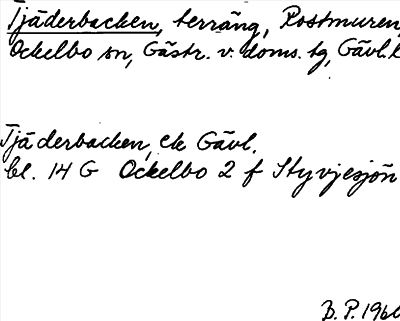 Tjäderbacken, terräng, Rostmuren,
Ockelbo sn, Gästr. v. doms. tg, Gävl. l
Tjäderbacken, ek Gävl.
bl. 14 G Ockelbo 2 f Styvjesjön
B. P. 196